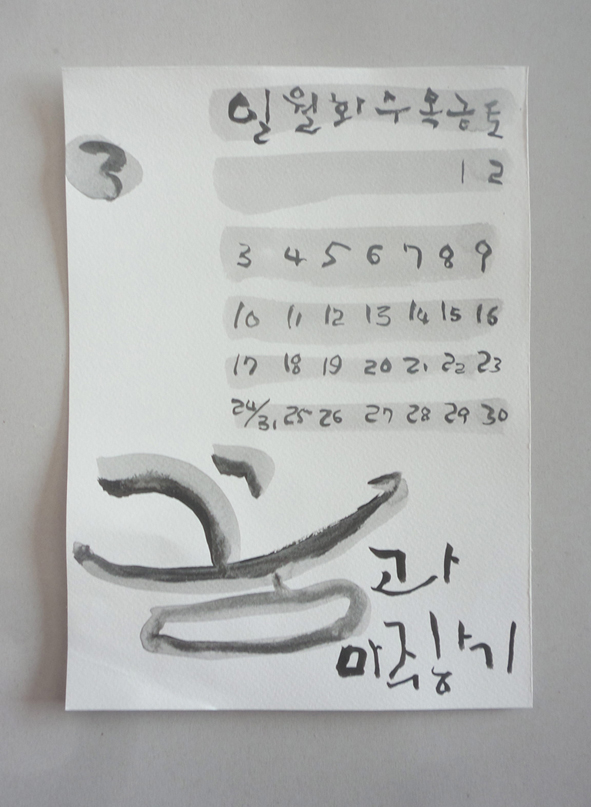 일 월 화 수 목 금 토
3
1 2
3 4 5 6 7 8 9
10 11 12 13 14 15 16
17 18 19 20 21 22 23
24/31 25 26 27 28 29 30
꿈과
마주하기